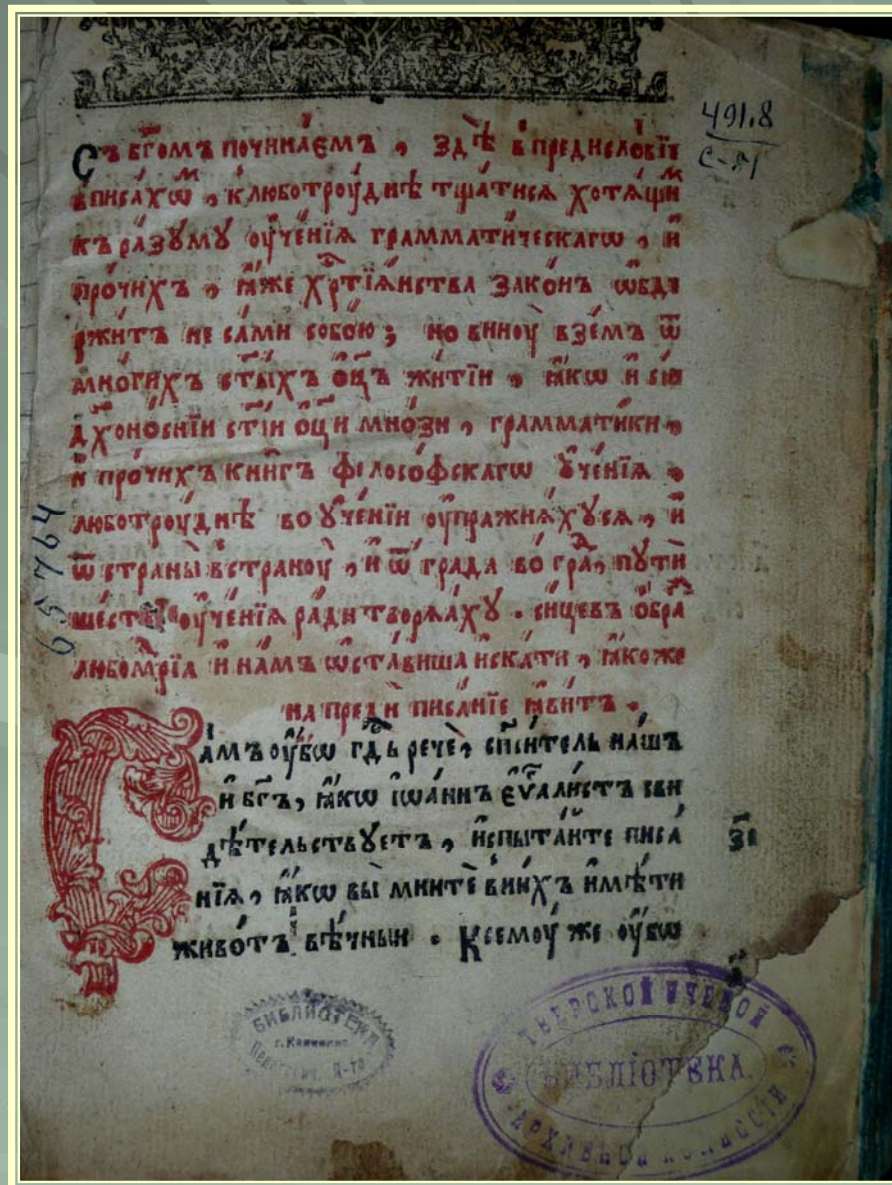 Съ бг҃омъ починаемъ , здѣ в предисловїи
вписахѡм , к люботрꙋднѣ тщатися хотящим
къ разꙋмꙋ оученїя грамматическагѡ , и
прочихъ , иже хрⷭ҇тїянства законъ ѡбде
ржитъ не сами собою ; но винꙋ вземъ ѿ
многихъ ст҃ыхъ оц҃ъ житїи , якѡ и сїи
дх҃оноснїи ст҃їи оц҃и мнози , грамматики
и прочихъ книгъ фїлософскагѡ ꙋченїя ,
люботрꙋднѣ во ꙋченїи оупражняхꙋся , и
ѿ страны в странꙋ , и ѿ града во град , пꙋти
шествїе оученїя ради творяахꙋ . сицевъ обра
любомⷣрїя и намъ ѡставиша искати , якоже
на преди писанїе явитъ .
Самъ оубѡ гдⷭ҇ь рече , сп҃итель нашъ
и бг҃ъ , якѡ їѡаннъ еѵⷢ҇алистъ сви
дѣтельствꙋетъ , испытаите писа
нїя , якѡ вы мните в нихъ имѣти
животъ вѣчныи . К семꙋ же оубѡ
з҃і
491.8
с-71
65764
БИБЛИОТЕКА
г. Калинин
ТВЕРСКОЙ УЧЕНОЙ
БИБЛІОТЕКА
АРХИВНОЙ КОМИССІИ